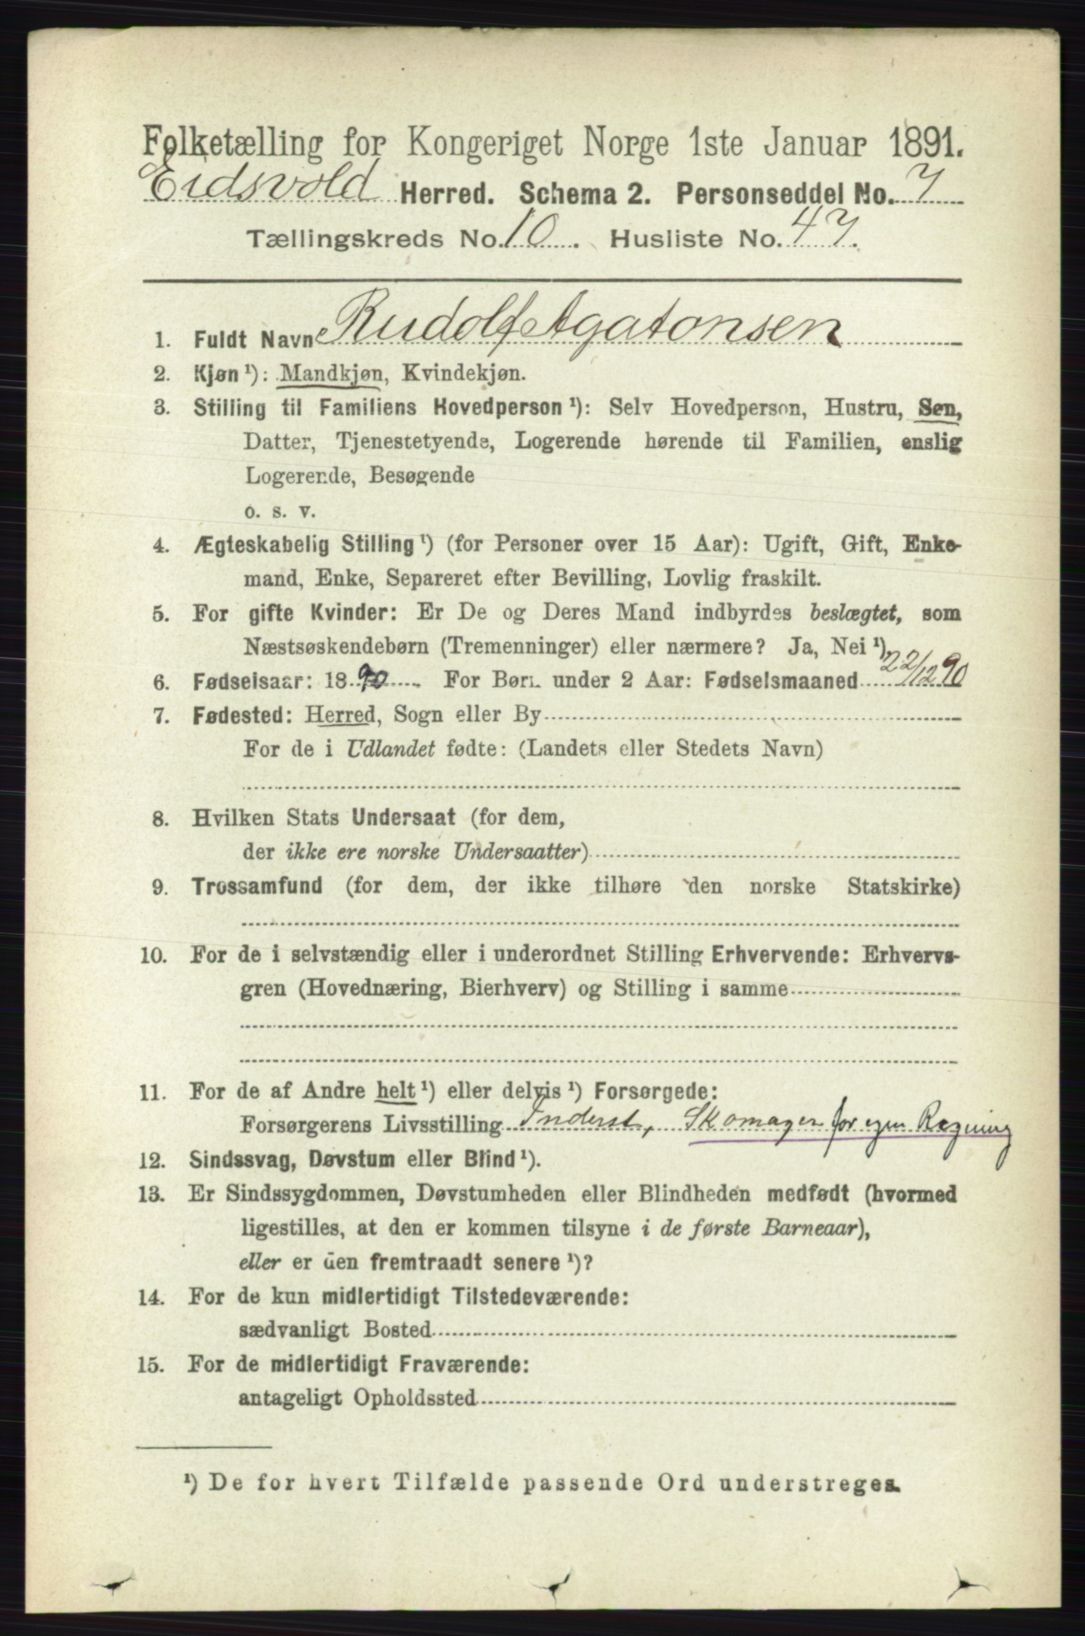 Folketælling for Kongeriget Norge 1ste Januar 1891.
Eidsvold Herred. Schema 2. Personseddel No. 7
Tællingskreds No. 10. Husliste No. 47.
1. Fuldt Navn Rudolf Agatonsen
2. Kjøn¹): Mandkjøn, Kvindekjøn.
3. Stilling til Familiens Hovedperson¹): Selv Hovedperson, Hustru, Søn,
Datter, Tjenestetyende, Logerende hørende til Familien, enslig
Logerende, Besøgende
o. s. v.
4. Ægteskabelig Stilling¹) (for Personer over 15 Aar): Ugift, Gift, Enke-
mand, Enke, Separeret efter Bevilling, Lovlig fraskilt.
5. For gifte Kvinder: Er De og Deres Mand indbyrdes beslægtet, som
Næstsøskendebørn (Tremenninger) eller nærmere? Ja, Nei¹).
6. Fødselsaar: 1890. For Børn under 2 Aar: Fødselsmaaned 22/12 90
7. Fødested: Herred, Sogn eller By
For de i Udlandet fødte: (Landets eller Stedets Navn)
8. Hvilken Stats Undersaat (for dem,
der ikke ere norske Undersaatter)
9. Trossamfund (for dem, der ikke tilhøre den norske Statskirke)
10. For de i selvstændig eller i underordnet Stilling Erhvervende: Erhvervs-
gren (Hovednæring, Bierhverv) og Stilling i samme
11. For de af Andre helt¹) eller delvis¹) Forsørgede:
Forsørgerens Livsstilling Inderst, Skomager for egen Regning
12. Sindssvag, Døvstum eller Blind¹).
13. Er Sindssygdommen, Døvstumheden eller Blindheden medfødt (hvormed
ligestilles, at den er kommen tilsyne i de første Barneaar),
eller er den fremtraadt senere¹)?
14. For de kun midlertidigt Tilstedeværende:
sædvanligt Bosted
15. For de midlertidigt Fraværende:
antageligt Opholdssted
¹) De for hvert Tilfælde passende Ord understreges.